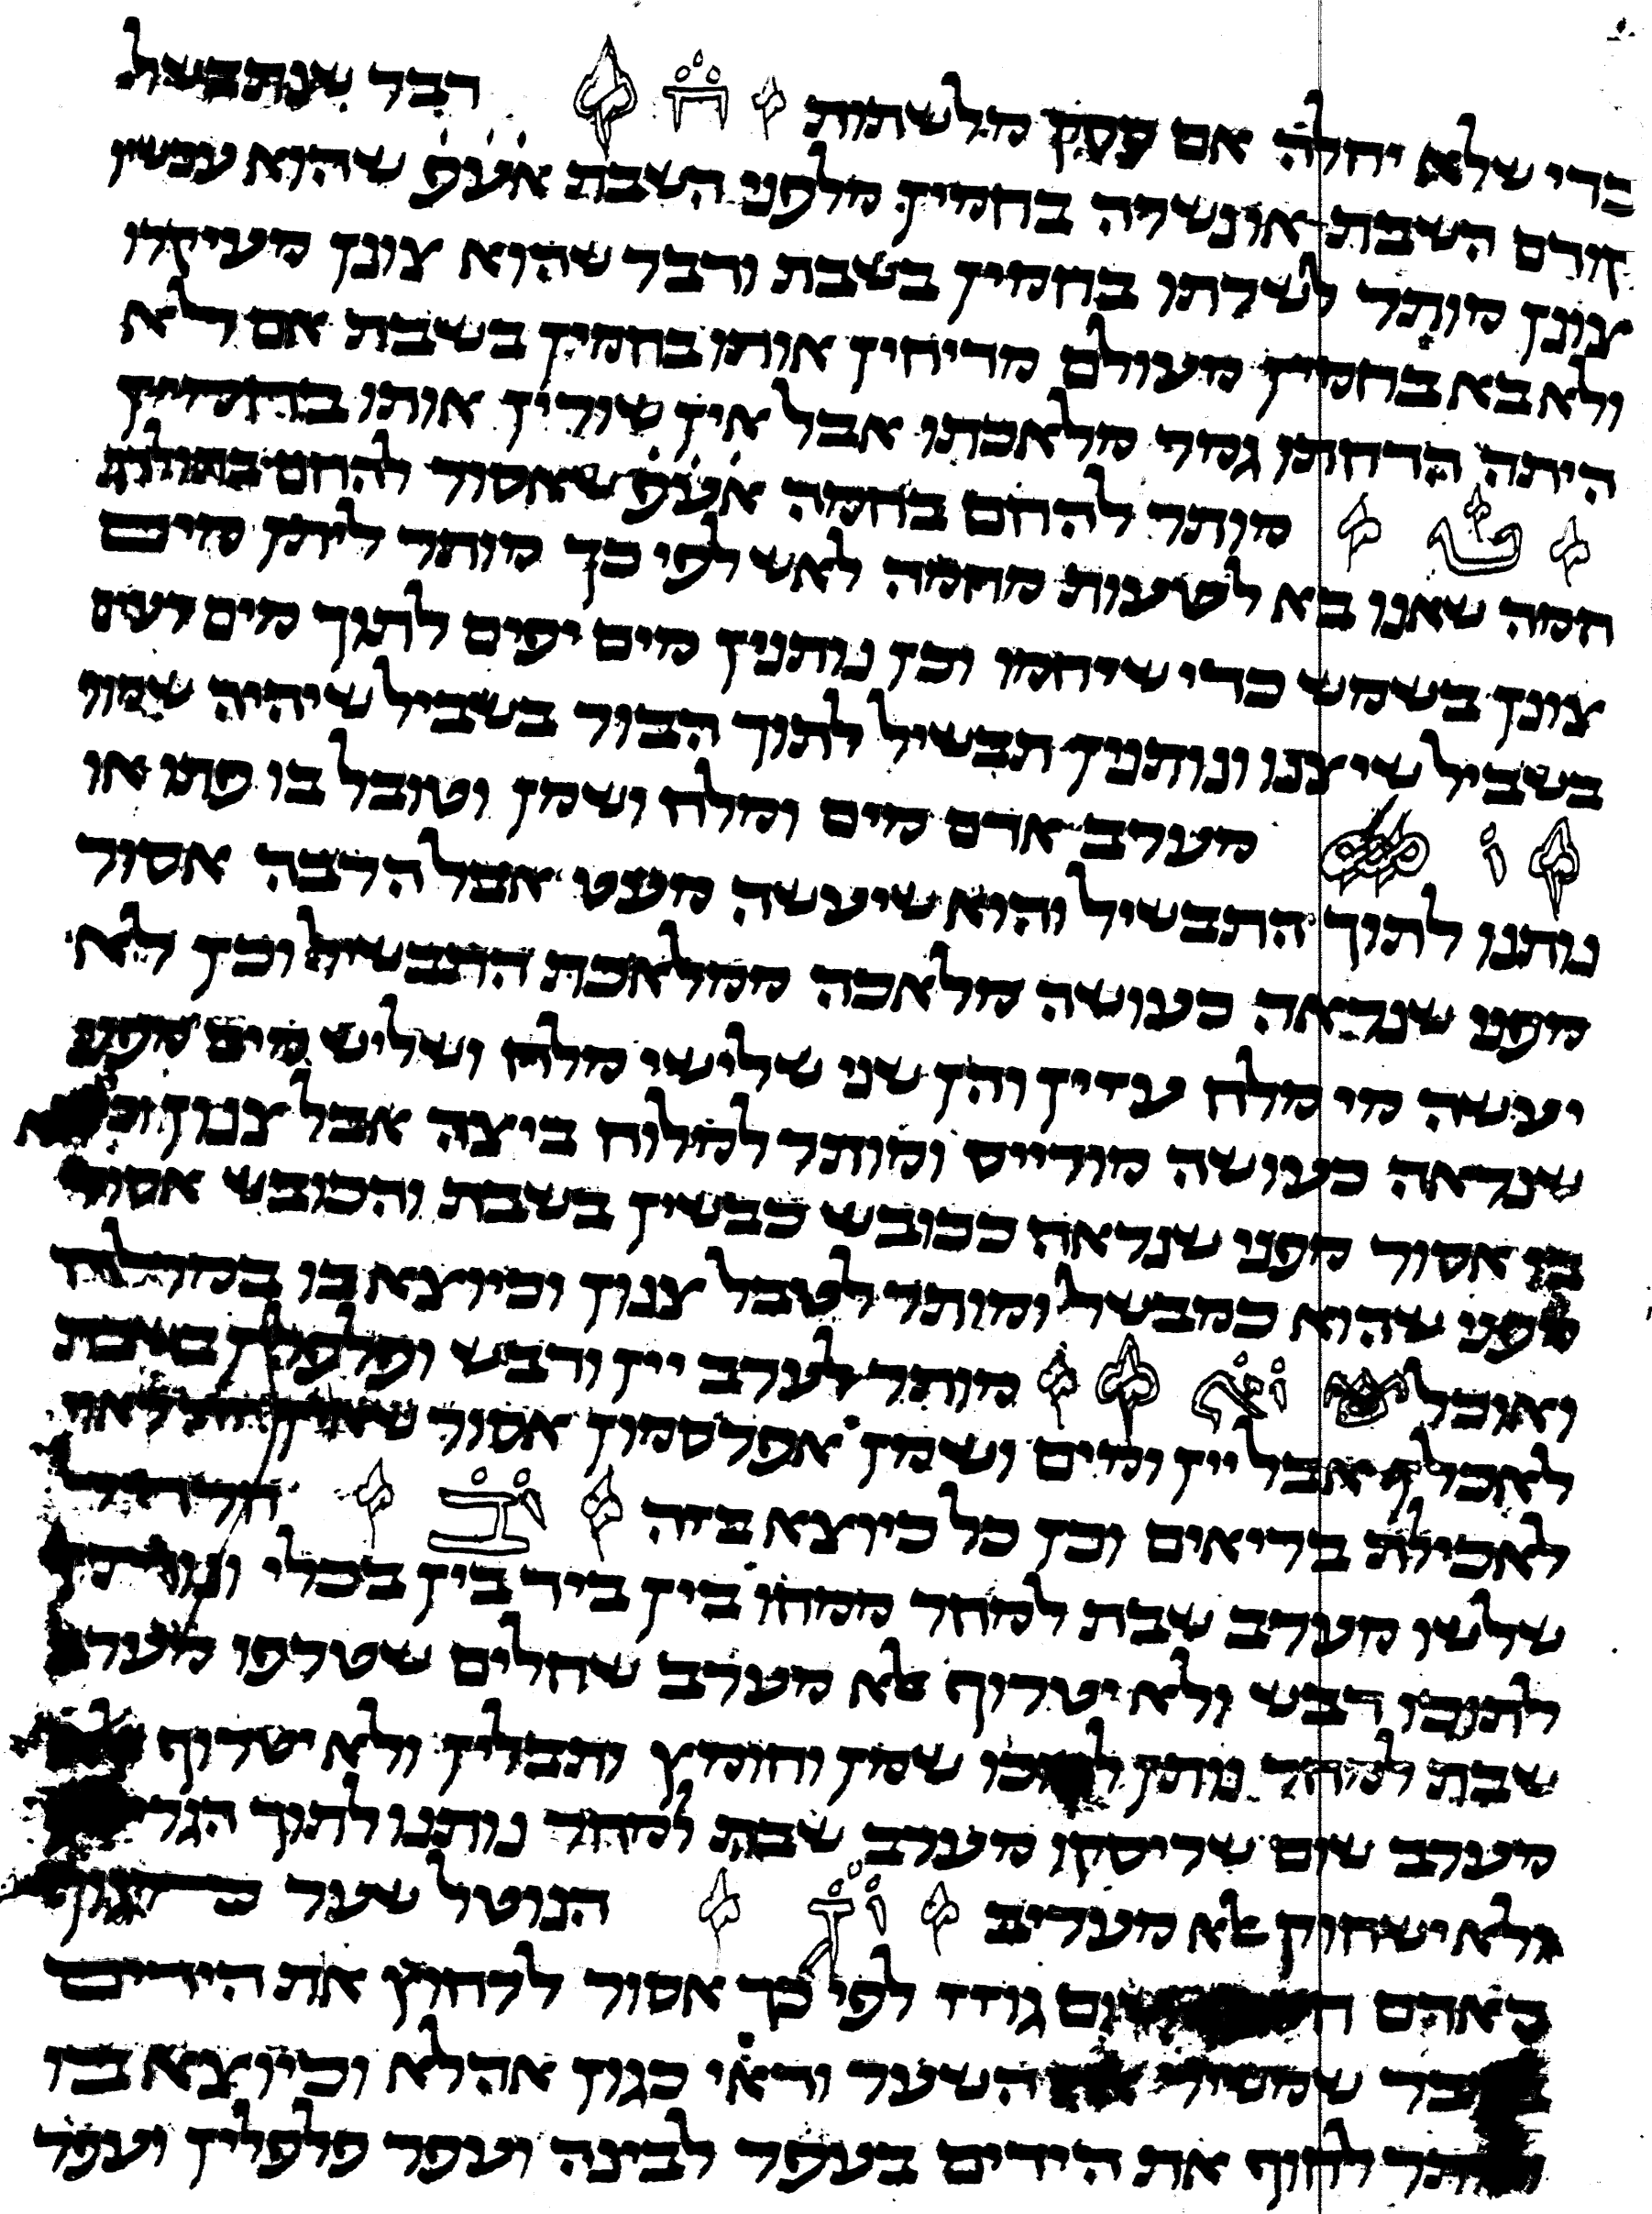 כדי שלא יחלה אם פסק מלשתות ח דבר שנתבשל
קודם השבת או נשרה בחמין מלפני השבת אֹעֹפֹ שהוא עכשיו
צונן מותר לשרתו בחמין בשבת ודבר שהוא צונן מעיקרו
ולא בא בחמין מעולם מדיחין אותו בחמין בשבת אם לא
היתה הדחתו גמר מלאכתו אבל אין שורין אותו בחמין
ט מותר להחם בחמה אֹעֹפֹ שאסור להחם בתולדות
חמה שאנו בא לטעות מחמה לאש לפי כך מותר ליתן מים
צונן בשמש כדי שיחמו וכן נותנין מים יפים לתוך מים רעים
בשביל שיצנו ונותנין תבשיל לתוך הבור בשביל שיהיה שמור
י מערב אדם מים ומלח ושמן וטובל בו פתו או
נותנו לתוך התבשיל והוא שיעשה מעט אבל הרבה אסור
מפני שנראה כעושה מלאכה ממלאכת התבשיל וכן לא
יעשה מי מלח עזין והן שני שלישי מלח ושליש מים מפני
שנראה כעושה מורייס ומותר למלוח ביצה אבל צנון וכיוצא
בו אסור מפני שנראה ככובש כבשין בשבת והכובש אסור
מפני שהוא כמבשל ומותר לטבל צנון וכיוצא בו במלח
ואוכל יא מותר לערב יין ודבש ופלפלין בשבת
לאכילה אבל יין ומים ושמן אפלסמון אסור שאין זה ראוי
לאכילת בריאים וכן כל כיוצא בזה יב חרדל
שלשו מערב שבת למחר ממחו בין ביד בין בכלי ונותן
לתוכו דבש ולא יטרוף אלא מערב שחלים שטרפו מערב
שבת למחר נותן לתוכו שמן וחומץ ותבלין ולא יטרוף אלא
מערב שום שריסקו מערב שבת למחר נותנו לתוך הגריסין
ולא ישחוק אלא מעריב יג הנוטל שער מגוף
האדם חייב משום גוזז לפי כך אסור לרחוץ את הידים
בדבר שמשיר את השער ודאי כגון אהלא וכיוצא בו
ומותר לחוף את הידים בעפר לבינה ועפר פלפלין ועפר